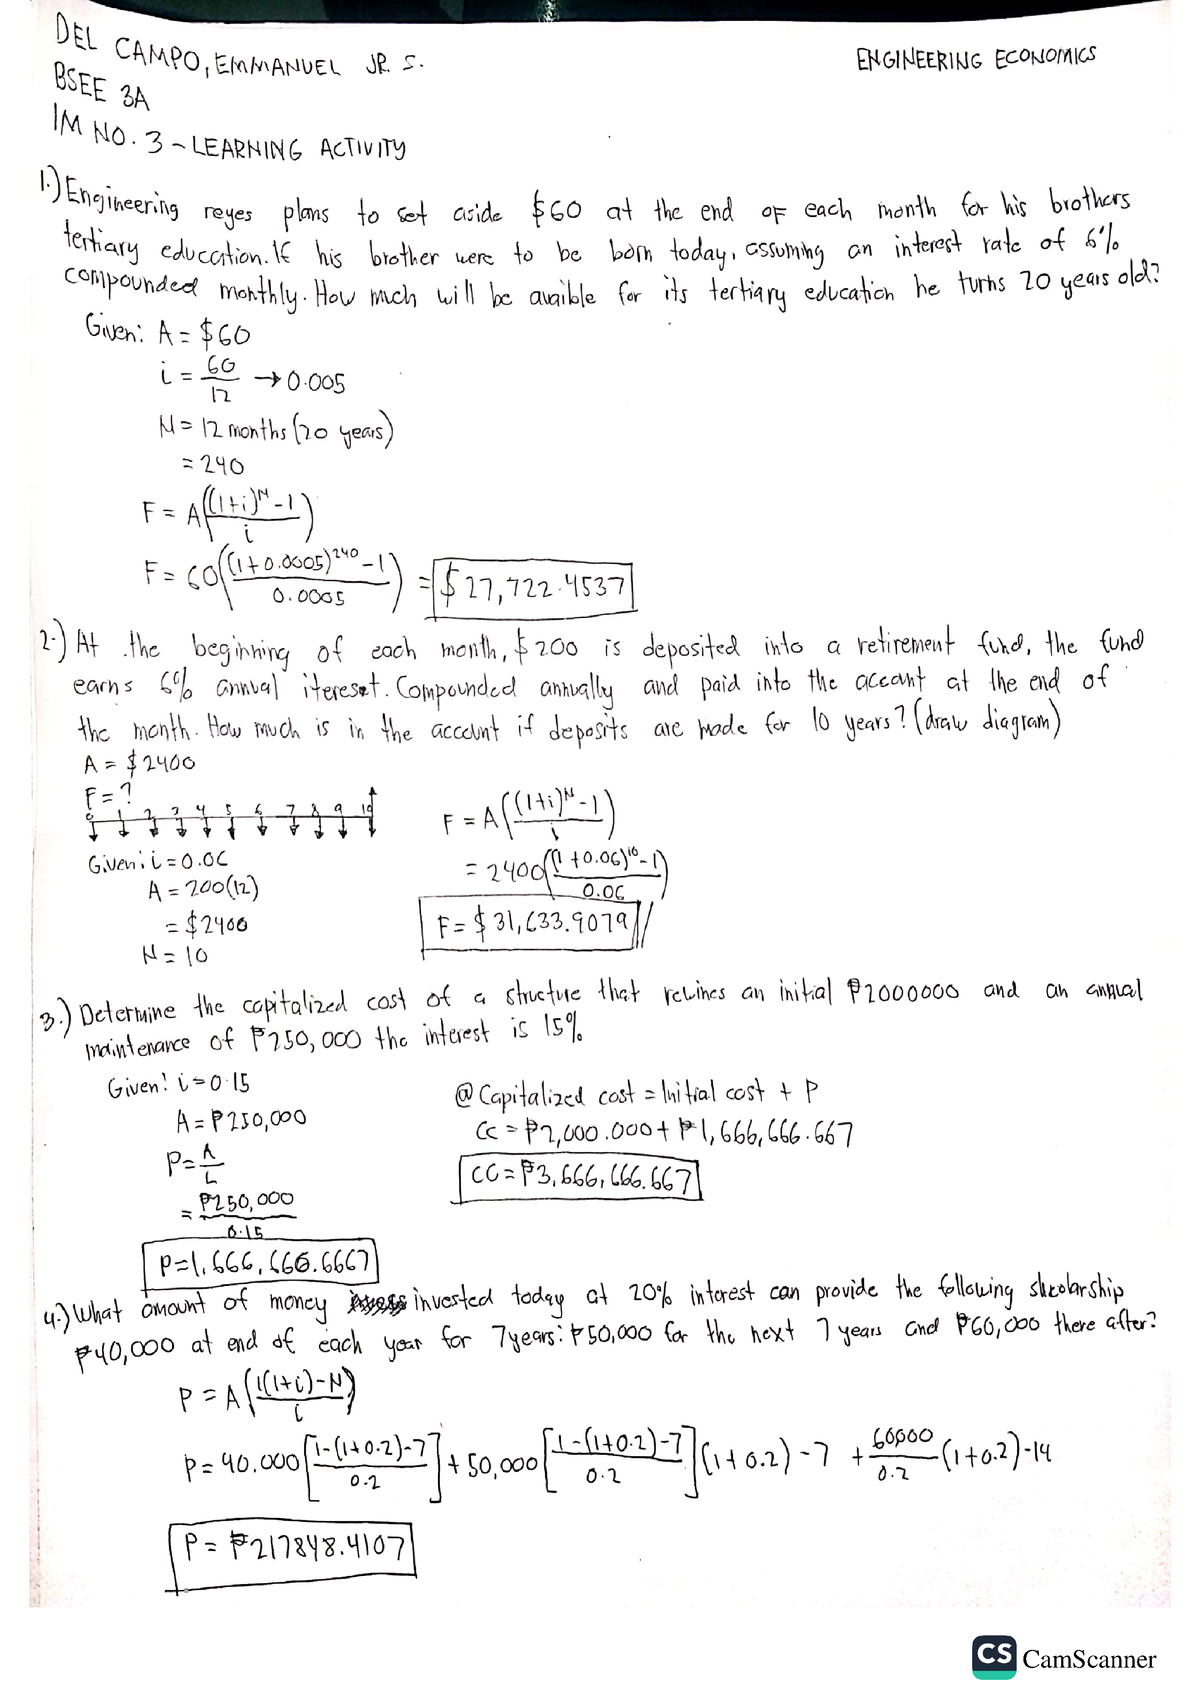 DEL CAMPO, EMMANUEL JR. S.
ENGINEERING ECONOMICS
BSEE 3A
IM NO. 3 - LEARNING ACTIVITY
1.) Engineering reyes plans to set aside $60 at the end of each month for his brothers
tertiary education. If his brother were to be born today, assuming an interest rate of 6%
compounded monthly. How much will be avaible for its tertiary education he turns 20 years old?
Given: A = $60
i = 60/12 → 0.005
N = 12 months (20 years)
= 240
F = A(((1+i)^N - 1)/i)
F = 60(((1+0.0005)^240 - 1)/0.0005) = $27,722.4537
2.) At the beginning of each month, $200 is deposited into a retirement fund, the fund
earns 6% annual itereset. Compounded annually and paid into the account at the end of
the month. How much is in the account if deposits are made for 10 years? (draw diagram)
A = $2400
F = ?
0 1 2 3 4 5 6 7 8 9 10
Given: i = 0.06
A = 200(12)
= $2400
N = 10
F = A(((1+i)^N - 1)/i)
= 2400(((1+0.06)^10 - 1)/0.06)
F = $31,633.9079//
3.) Determine the capitalized cost of a structure that an initial ₱2000000 and an annual
maintenance of ₱250,000 the interest is 15%
Given: i = 0.15
A = ₱250,000
P = A/i
= ₱250,000/0.15
P = 1,666,666.6667
@ Capitalized cost = Initial cost + P
CC = ₱2,000.000 + ₱1,666,666.667
CC = ₱3,666,666.667
4.) What amount of money invested today at 20% interest can provide the following
₱40,000 at end of each year for 7 years: ₱50,000 for the next 7 years and ₱60,000 there after?
P = A(1(1+i)-N)/i)
P = 40.000[(1-(1+0.2)-7)/0.2] + 50,000[(1-(1+0.2)-7)/0.2](1+0.2)-7 + 60000/0.2 (1+0.2)-14
P = ₱217848.4107
CS CamScanner